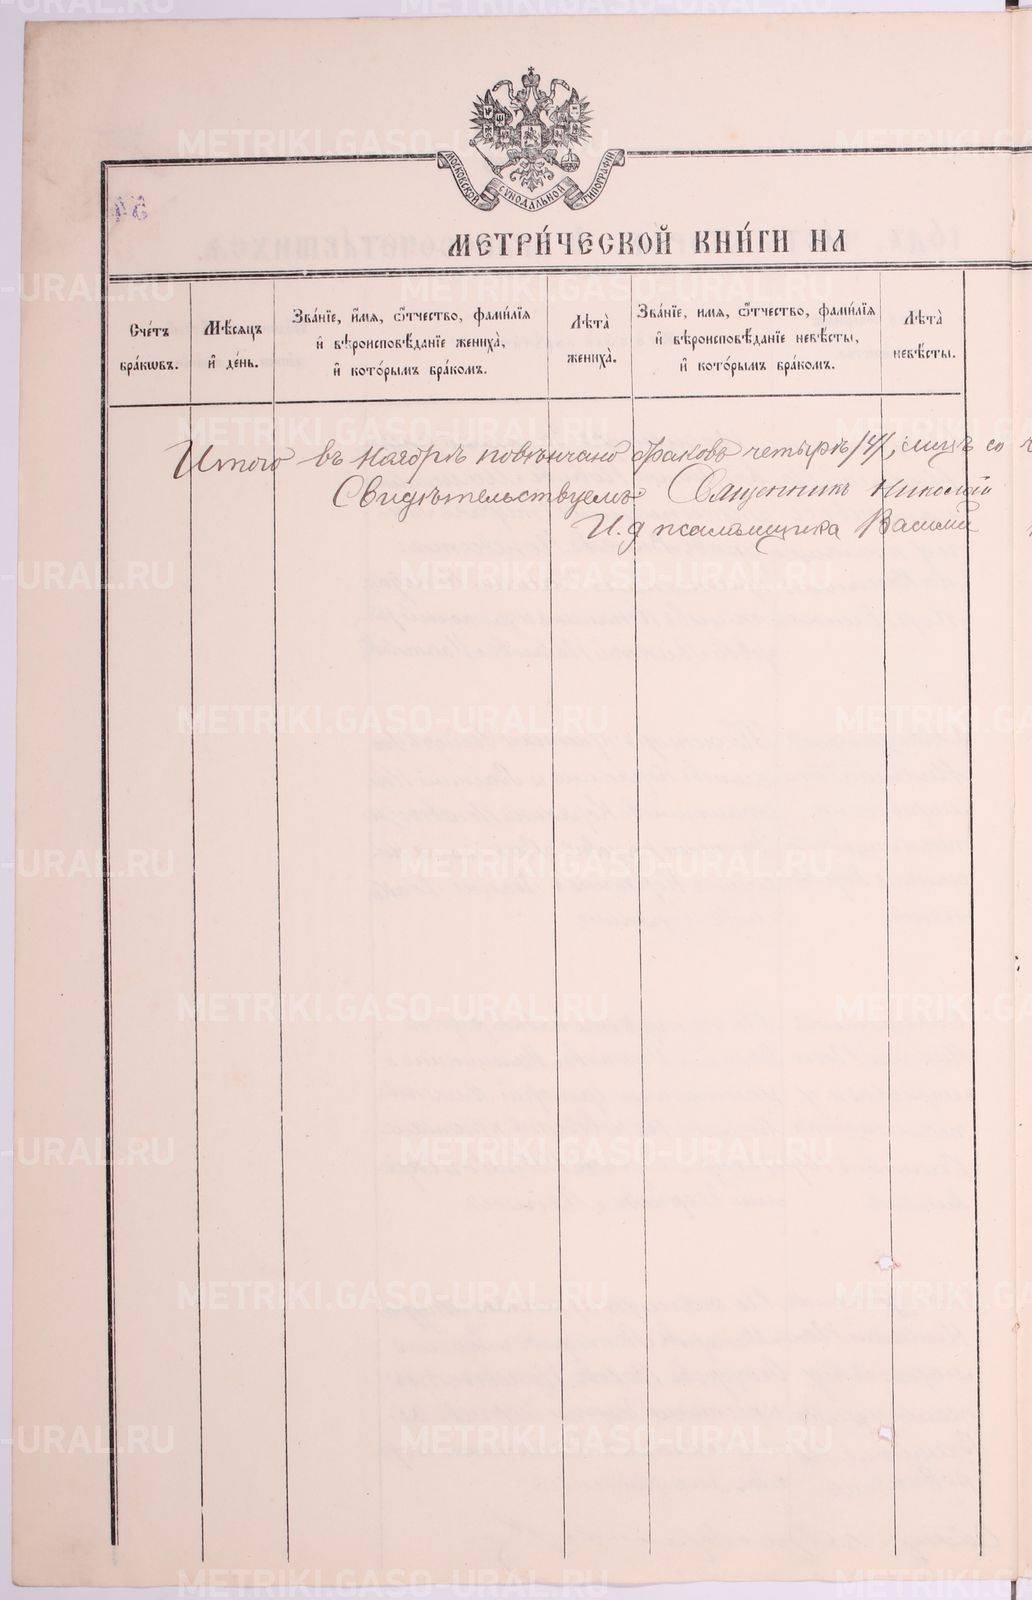 МОСКОВСКОЙ СѴНОДАЛЬНОЙ ТИПОГРАФІИ
54
МЕТРИ́ЧЕСКОЙ КНИ́ГИ НА
Сче́тъ бра́кѡвъ.
Мѣ́сѧцъ и҆ де́нь.
Зва́нїе, и҆́мѧ, ѻ҆́тчество, фами́лїѧ и҆ вѣроисповѣ́данїе жениха̀, и҆ кото́рымъ бра́комъ.
Лѣ́та жениха̀.
Зва́нїе, имѧ, ѻ҆́тчество, фами́лїѧ и҆ вѣроисповѣ́данїе невѣ́сты, и҆ кото́рымъ бра́комъ.
Лѣ́та невѣ́сты.
Итого въ Ноябрѣ повѣнчано браковъ четыре /4/, лицъ со
Свидѣтельствуемъ: Священникъ Николай
И. д псаломщика Василий
METRIKI.GASO-URAL.RU